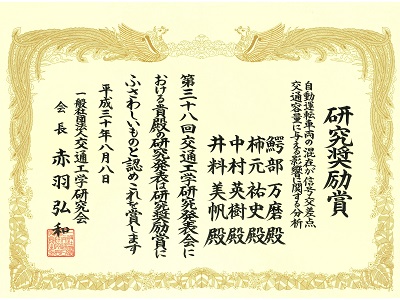 研究奨励賞
自動運転車両の混在が信号交差点
交通容量に与える影響に関する分析
鰐部 万磨 殿
柿元 祐史 殿
中村 英樹 殿
井料 美帆 殿
第三十八回交通工学研究発表会に
おける貴殿の研究発表は研究奨励賞に
ふさわしいものと認めこれを賞します
平成三十年八月八日
一般社団法人交通工学研究会
会長 赤羽 弘和